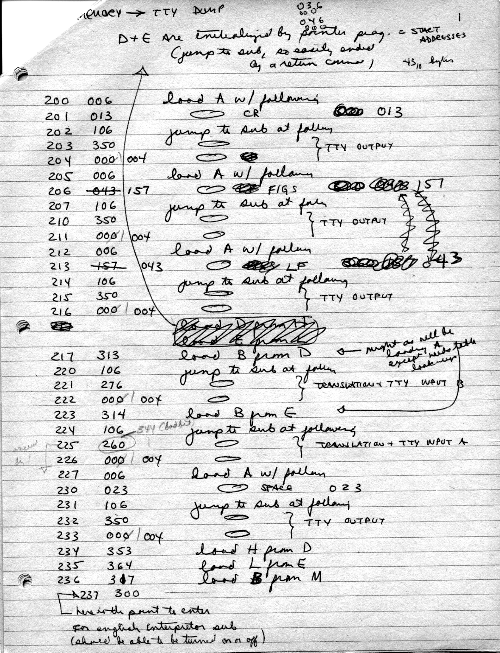 MEMORY → TTY DUMP
036
000
046
000
1
D+E are initialized by pointer prog. = START ADDRESSES
(jump to sub, so easily ended
by a return comm)
43₁₀ bytes
200 006 load A w/ following
201 013 CR 013
202 106 jump to sub at follwg
203 350 } TTY OUTPUT
204 000/004
205 006 load A w/ following
206 043 157 FIGS 157
207 106 jump to sub at follwg
210 350 } TTY OUTPUT
211 000/004
212 006 load A w/ follwg
213 157 043 LF 043
214 106 jump to sub at following
215 350 } TTY OUTPUT
216 000/004
217 313 load B from D ← might as well be
loading A
except need table
lookup
220 106 jump to sub at follwg
221 276 } TRANSLATION + TTY INPUT B
222 000/004
223 314 load B from E
224 106 jump to sub at following
225 260 } TRANSLATION + TTY INPUT A
226 000/004
227 006 load A w/ follwg
230 023 SPACE 023
231 106 jump to sub at following
232 350 } TTY OUTPUT
233 000/004
234 353 load H from D
235 364 load L from E
236 317 load B from M
237 300
here is the point to enter
for english interpreter sub
(should be able to be turned on or off)